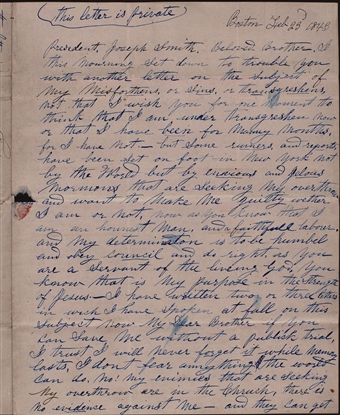 (this letter is private)
Boston Feb 23d 1843
President Joseph Smith, Beloved Brother, I
this morning set down to trouble you
with another letter on the subject of
My Misfortions, or Sins, or transgreshens,
not that I wish you for one moment to
think that I am under transgreshen now
or that I have been for Menny Months,
for I have not - but Some ruiners, and reports
have been set on foot in New York not
by the World but by envious and gelous
Mormons that are seeking My overthrow
and want to Make Me guilty wether
I am or not, now as you know that I
am an honnest Man, and faithfull labour.
and My determination is to be humbel
and obey council and do right, as you
are a Servant of the liveing God, you
know that is My purpose in the Strength
of Jesus - I have written two or three letters
in wich I have spoken at full on this
Subject now My Dear Brother if you
can Save Me without a publick trial,
I trust I will never forget it while Memory
lasts, I dont fear anything the world
can do. No! My enimies that are Seeking
My overthrow are in the Church, there is
no evidence against Me - and they can get